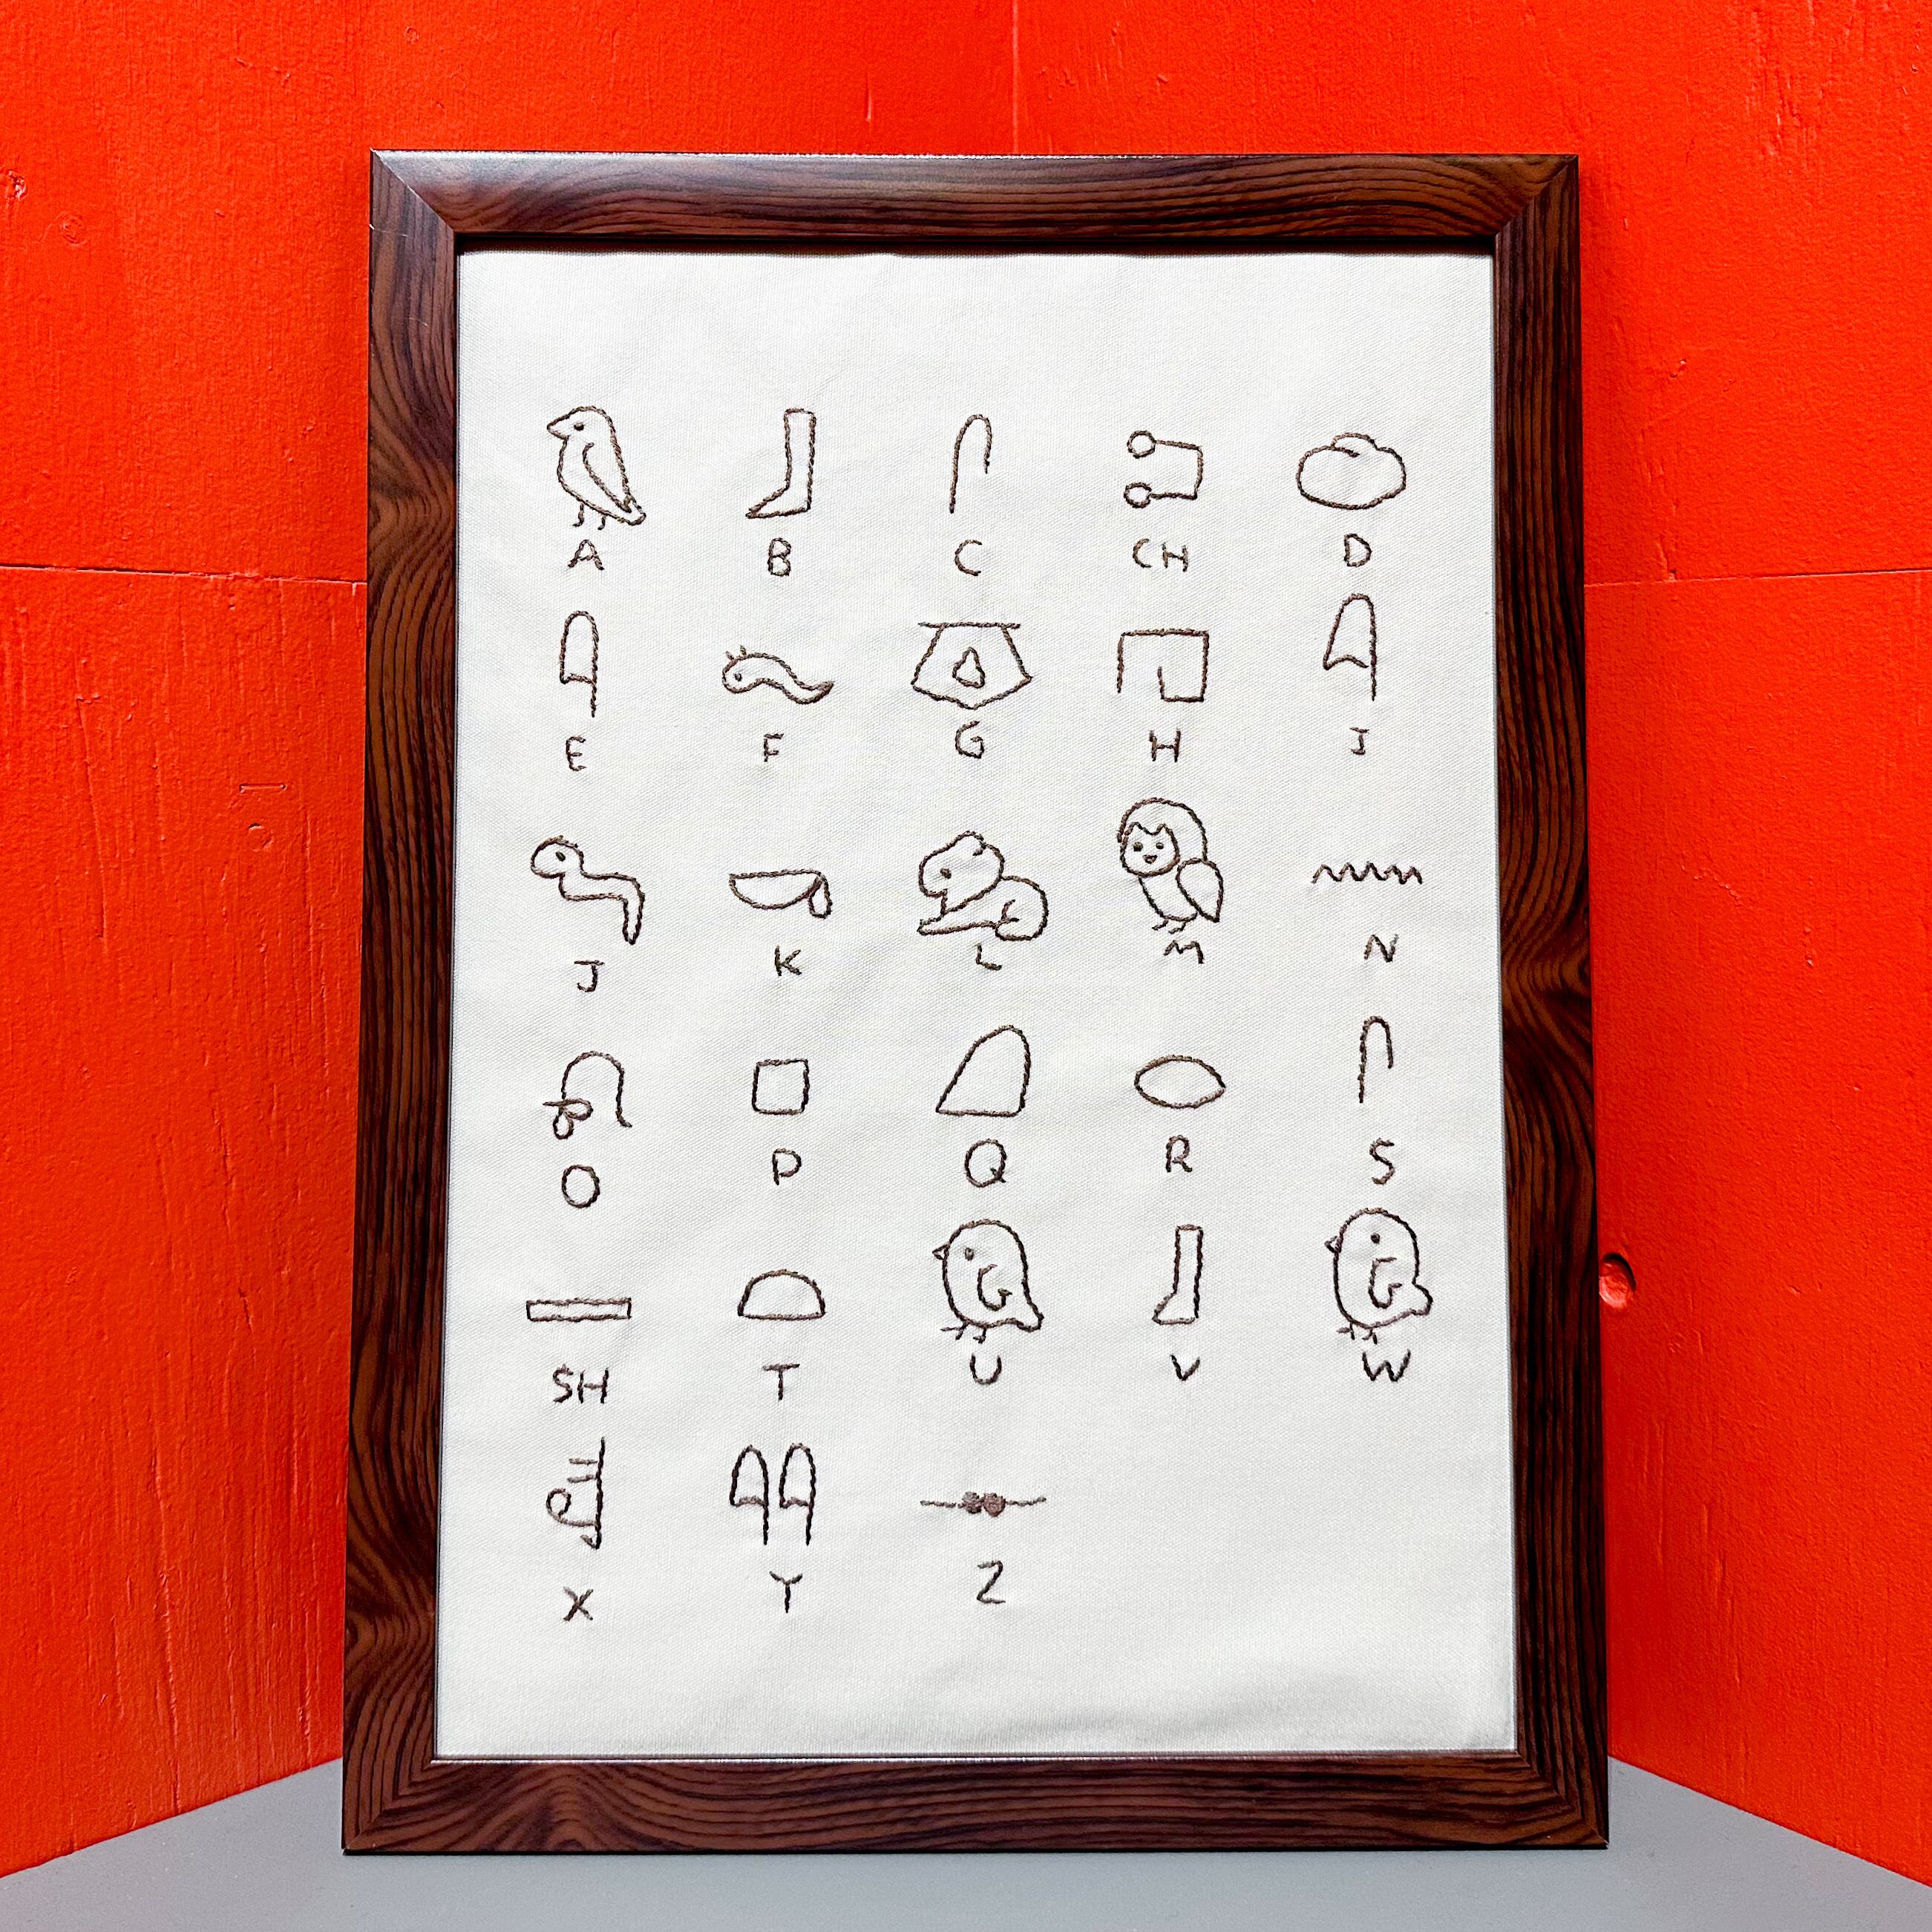 A B C CH D
E F G H I
J K L M N
O P Q R S
SH T U V W
X Y Z